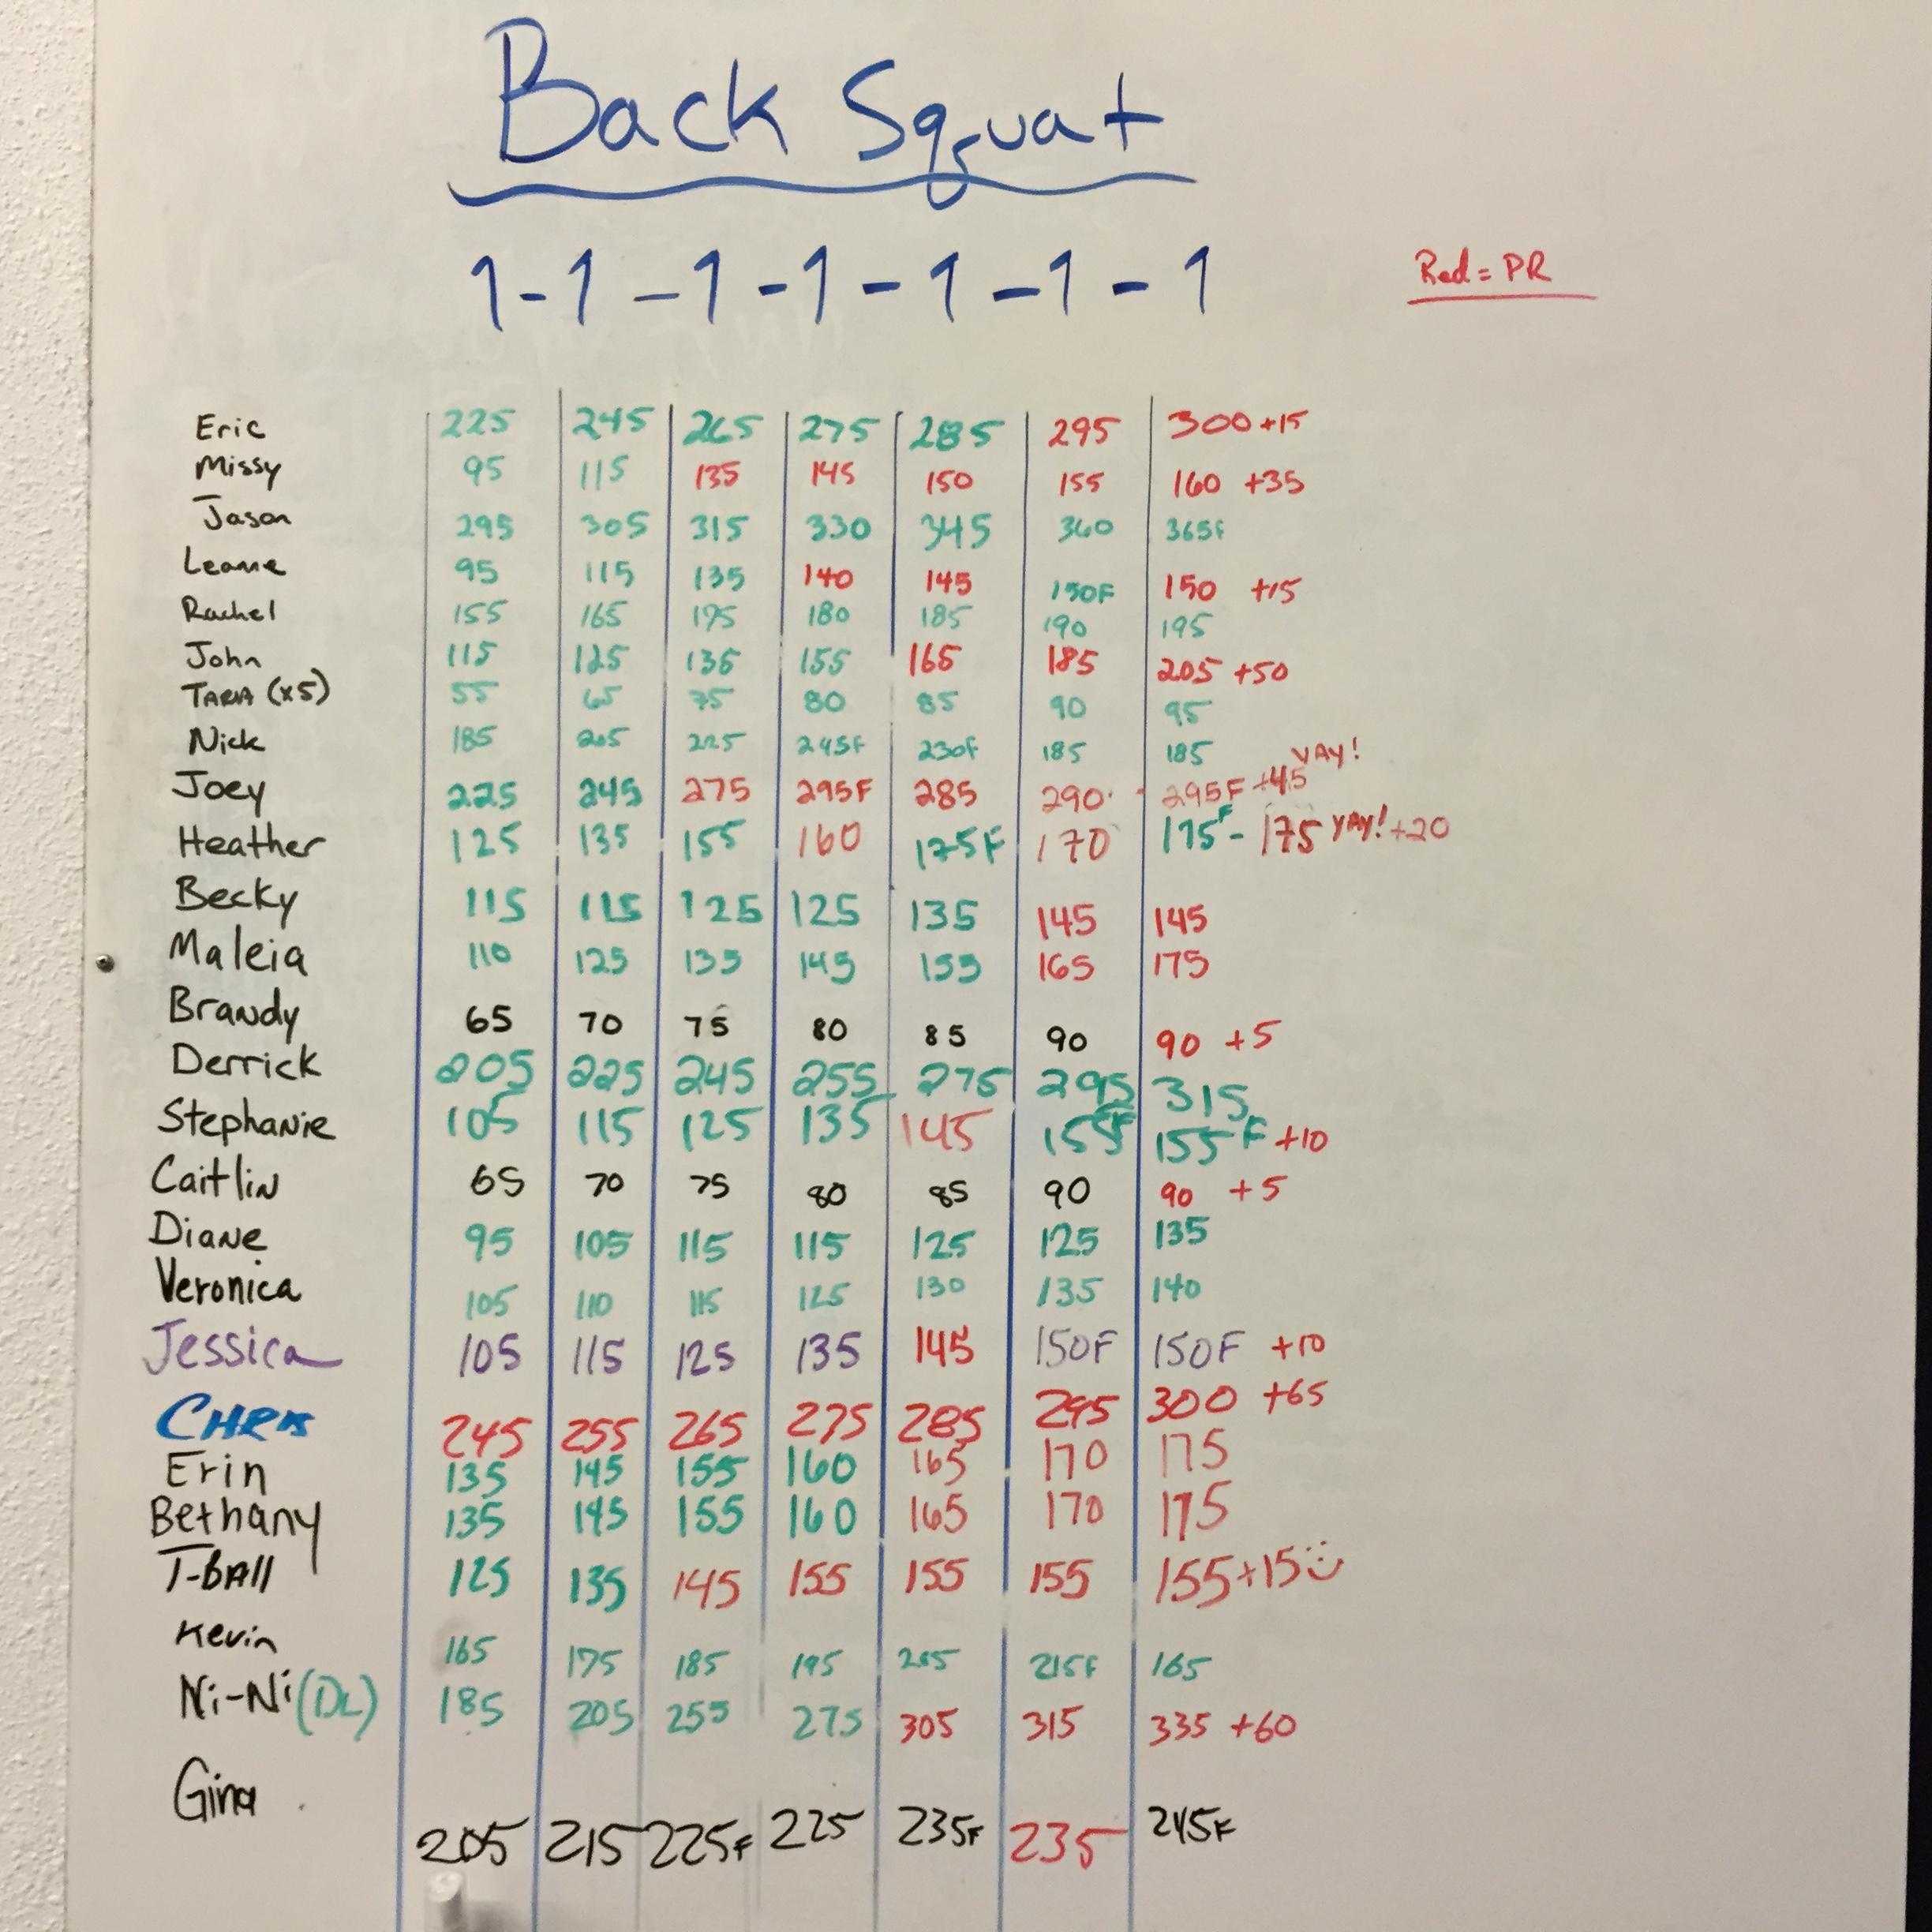 Back Squat
1-1-1-1-1-1-1
Red = PR
Eric 225 245 265 275 285 295 300 +15
Missy 95 115 135 145 150 155 160 +35
Jason 295 305 315 330 345 360 365F
Leanne 95 115 135 140 145 150F 150 +15
Rachel 155 165 175 180 185 190 195
John 115 125 135 155 165 185 205 +50
TARA (x5) 55 65 75 80 85 90 95
Nick 185 205 225 245F 230F 185 185
Joey 225 245 275 295F 285 290 295F +45 YAY!
Heather 125 135 155 160 175F 170 175F - 175 YAY! +20
Becky 115 115 125 125 135 145 145
Maleia 110 125 135 145 155 165 175
Brandy 65 70 75 80 85 90 90 +5
Derrick 205 225 245 255 275 295 315
Stephanie 105 115 125 135 145 155F 155F +10
Caitlin 65 70 75 80 85 90 90 +5
Diane 95 105 115 115 125 125 135
Veronica 105 110 115 125 130 135 140
Jessica 105 115 125 135 145 150F 150F +10
CHRIS 245 255 265 275 285 295 300 +65
Erin 135 145 155 160 165 170 175
Bethany 135 145 155 160 165 170 175
T-BALL 125 135 145 155 155 155 155 +15
Kevin 165 175 185 195 205 215F 165
Ni-Ni (DL) 185 205 255 275 305 315 335 +60
Gina 205 215 225F 225 235F 235 245F